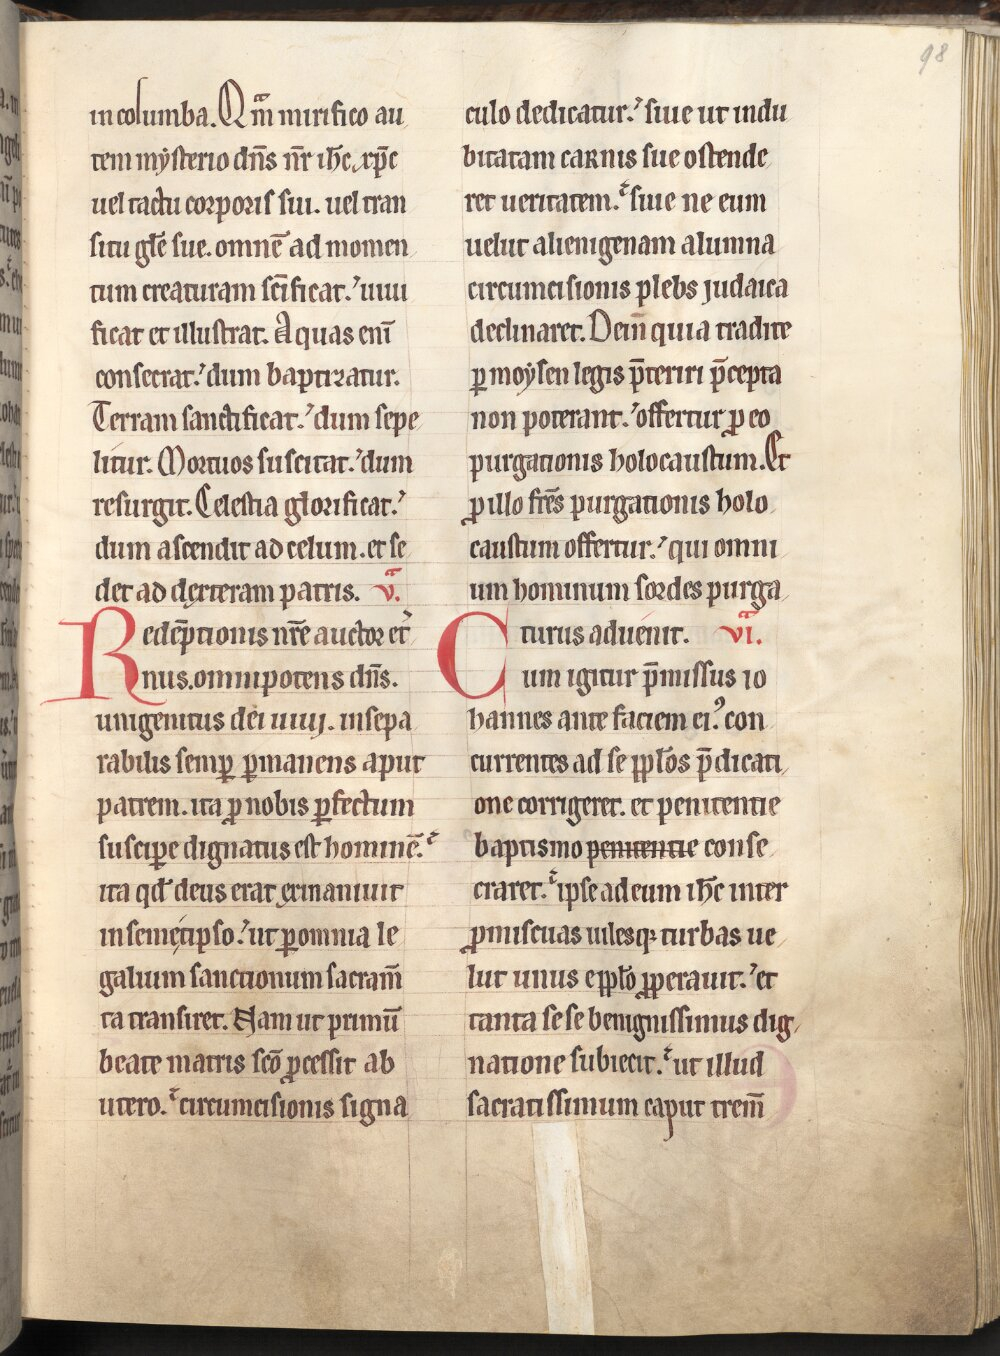 98
in columba. Qm̃ mirifico au
tem mẏsterio dñs nr̃ ih̅c xp̅c
uel tactu corporis sui. uel tran
situ gle̅ sue. omne̅ ad momen
tum creaturam sci̅ficat. uiui
ficat et illustrat. Aquas eni̅
consecrat. dum baptizatur.
Terram sanctificat. dum sepe
litur. Mortuos suscitat. dum
resurgit. Celestia glorificat.
dum ascendit ad celum. et se
det ad dexteram patris. v̅.
Redēptionis nr̅e auctor et
nus. omnipotens dñs.
unigenitus dei uiui. insepa
rabilis semꝑ ꝑmanens aput
patrem. ita ꝓ nobis ꝑfectum
susciꝑe dignatus est homine̅.
ita qd̅ deus erat exinaniuit
in semetipso. ut ꝑ omnia le
galium sanctionum sacram̅
ta transiret. Nam ut primu̅
beate matris sco̅ ꝓcessit ab
utero. circumcisionis signa
culo dedicatur. siue ut indu
bitatam caʀnis sue ostende
ret ueritatem. siue ne eum
uelut alienigenam alumna
circumcisionis plebs judaica
declinaret. Dein̅ quia tradite
ꝑ moẏsen legis p̅teriri p̅cepta
non poterant. offertur ꝓ eo
purgationis holocaustum. Et
ꝓ illo fr̅es purgationis holo
caustum offertur. qui omni
um hominum sordes purga
turus aduenit. vi̅.
Cum igitur p̅missus io
hannes ante faciem eiꝰ con
currentes ad se pplo̅s p̅dicati
one corrigeret. et penitentie
baptismo penitentie conse
craret. ipse ad eum ih̅c inter
ꝓmiscuas uilesqꝫ turbas ue
lut unus e pplo̅ ꝓperauit. et
tanta sese benignissimus dig
natione subiecit. ut illud
sacratissimum caput trem̅